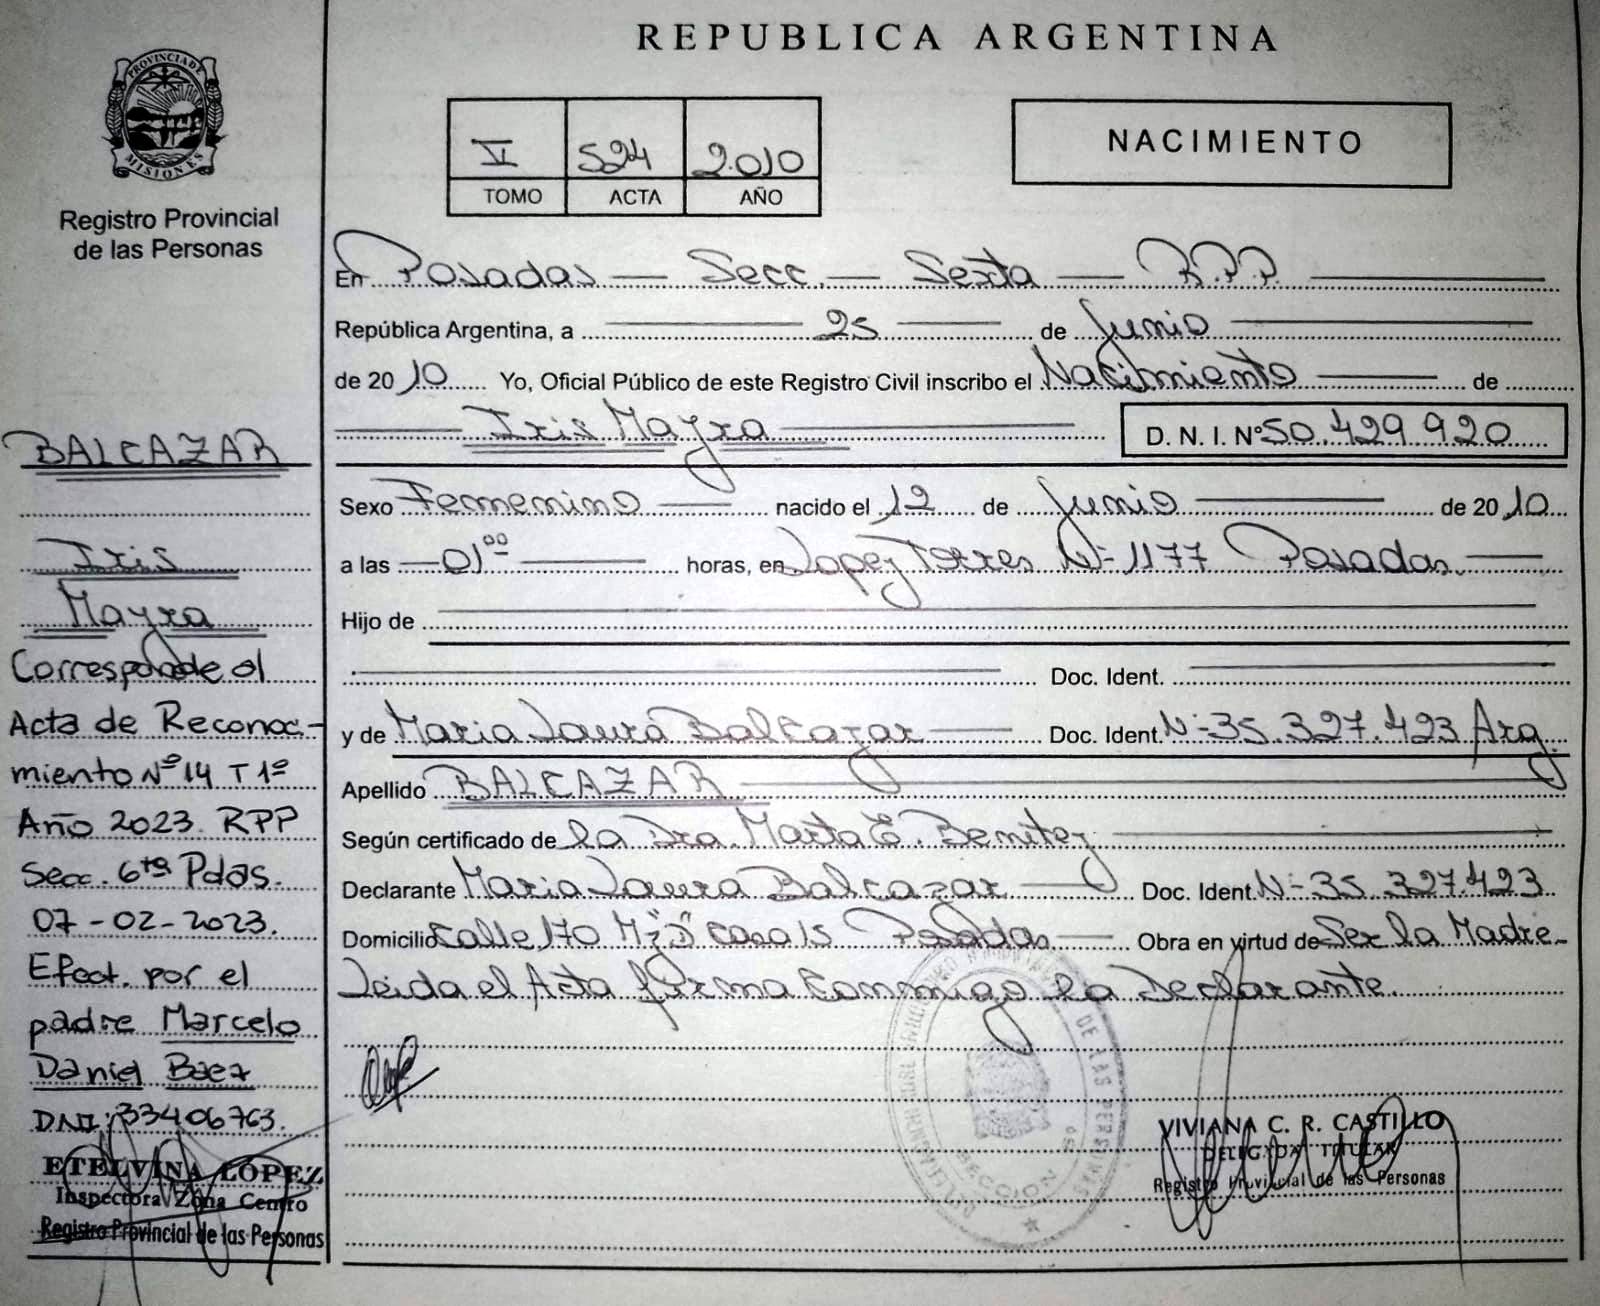 REPUBLICA ARGENTINA
PROVINCIA DE
MISIONES
Registro Provincial
de las Personas
V 524 2.010
TOMO ACTA AÑO
NACIMIENTO
En Posadas — Secc. — Sexta — R.P.P.
República Argentina, a 25 de Junio
de 2010 Yo, Oficial Público de este Registro Civil inscribo el Nacimiento de
Iris Mayra D. N. I. Nº 50.429.920
Sexo Femenino nacido el 12 de Junio de 2010
a las 01⁰⁰ horas, en Lopez Torres Nº 1177 Posadas.
Hijo de
Doc. Ident.
y de Maria Laura Balcazar Doc. Ident. Nº 35.327.423 Arg.
Apellido BALCAZAR
Según certificado de la Dra. Marta E. Benitez
Declarante Maria Laura Balcazar Doc. Ident. Nº 35.327.423
Domicilio Calle 170 Mz "J" casa 15 Posadas Obra en virtud de Ser la Madre.
Leida el Acta firma Conmigo la Declarante.
BALCAZAR
Iris
Mayra
Corresponde al
Acta de Reconoc-
miento Nº 14 T 1º
Año 2023. RPP
Secc. 6ta Pdas.
07-02-2023.
Efect. por el
padre Marcelo
Daniel Baez
DNI: 33406763.
ETELVINA LOPEZ
Inspectora Zona Centro
Registro Provincial de las Personas
DE LAS PERSONAS
SECCION
VIVIANA C. R. CASTILLO
DELEGADA TITULAR
Registro Provincial de las Personas